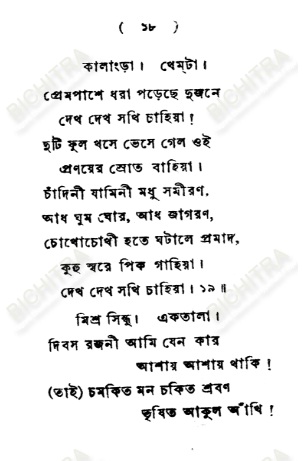 ( ১৮ )
কালাংড়া। খেম্‌টা।
প্রেমপাশে ধরা পড়েছে দুজনে
দেখ দেখ সখি চাহিয়া!
দুটি ফুল খসে ভেসে গেল ওই
প্রণয়ের স্রোত বাহিয়া।
চাঁদিনী যামিনী মধু সমীরণ,
আধ ঘুম ঘোর, আধ জাগরণ,
চোখোচোখী হতে ঘটালে প্রমাদ,
কুহু স্বরে পিক গাহিয়া।
দেখ দেখ সখি চাহিয়া। ১৯॥
মিশ্র সিন্ধু। একতালা।
দিবস রজনী আমি যেন কার
আশায় আশায় থাকি!
(তাই) চমকিত মন চকিত শ্রবণ
তৃষিত আকুল আঁখি!
BICHITRA
BICHITRA
BICHITRA
BICHITRA